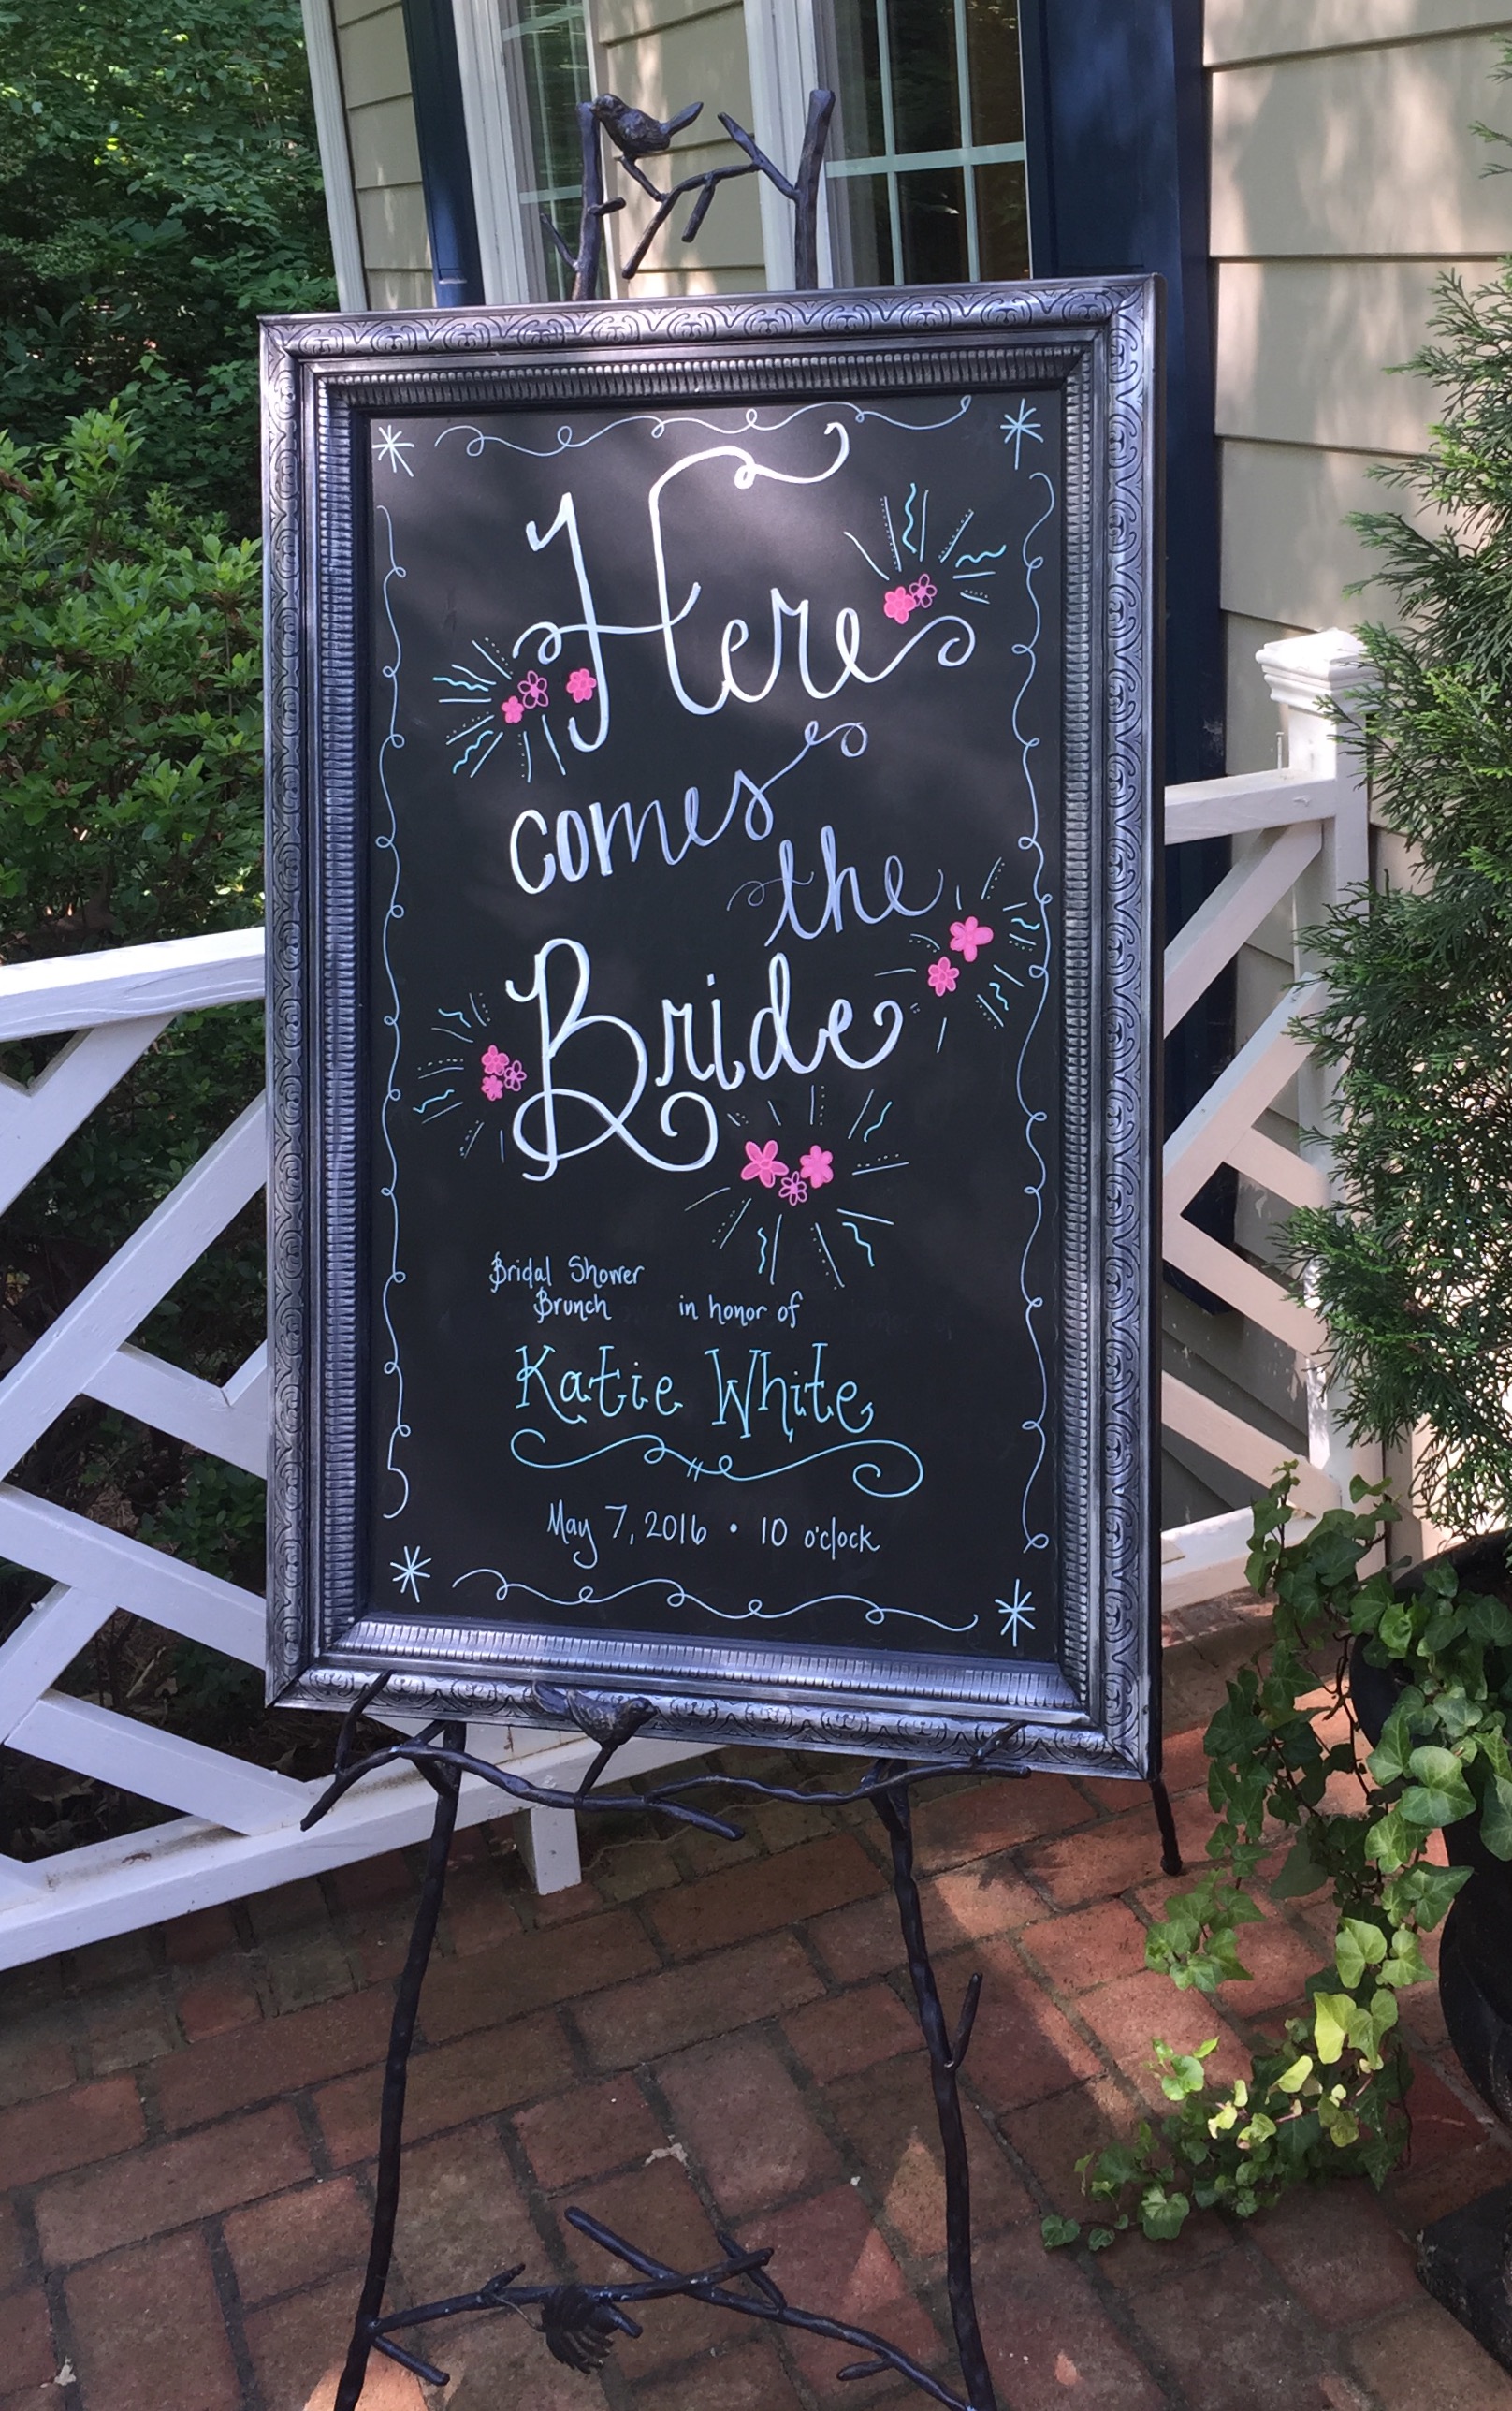 Here
comes
the
Bride
Bridal Shower
Brunch in honor of
Katie White
May 7, 2016 • 10 o'clock